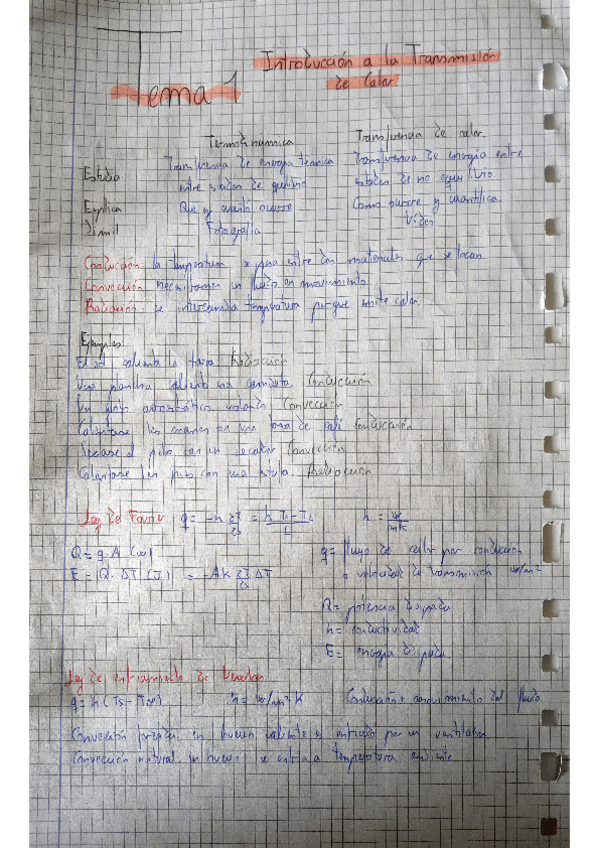 Introducción a la Transmisión
de Calor
Tema 1
Termodinámica Transferencia de calor.
Estudia Transferencia de energía térmica Transferencia de energía entre
entre estados de equilibrio estados de no equilibrio
Explica Que y cuanto ocurre Como ocurre y cuantifica
Símil Fotografía Vídeo
Conducción: la temperatura se pasa entre dos materiales que se tocan
Convección: necesitamos un fluido en movimiento
Radiación: se intercambia temperatura porque emite calor
Ejemplos:
El sol calienta la tierra Radiación
Una plancha caliente una camiseta. Conducción
Un globo aerostático volando Convección
Calentarse las manos en una taza de café Conducción
Secarse el pelo con un secador Convección
Calentarse los pies con una estufa. Radiación
Ley de Fourier q = -k dT/dx = k T1-T2/L k = w/mK
Q = q·A (w) q = flujo de calor por conducción
E = Q·ΔT (J) = -Ak dT/dx ΔT o velocidad de transmisión w/m²
Q = potencia disipada
k = conductividad
E = energía disipada
Ley de enfriamiento de Newton
q = h(Ts - T∞) h = w/m² K Conducción + movimiento del fluido
Convección forzada: un huevo caliente es enfriado por un ventilador
Convección natural: un huevo se enfria a temperatura ambiente